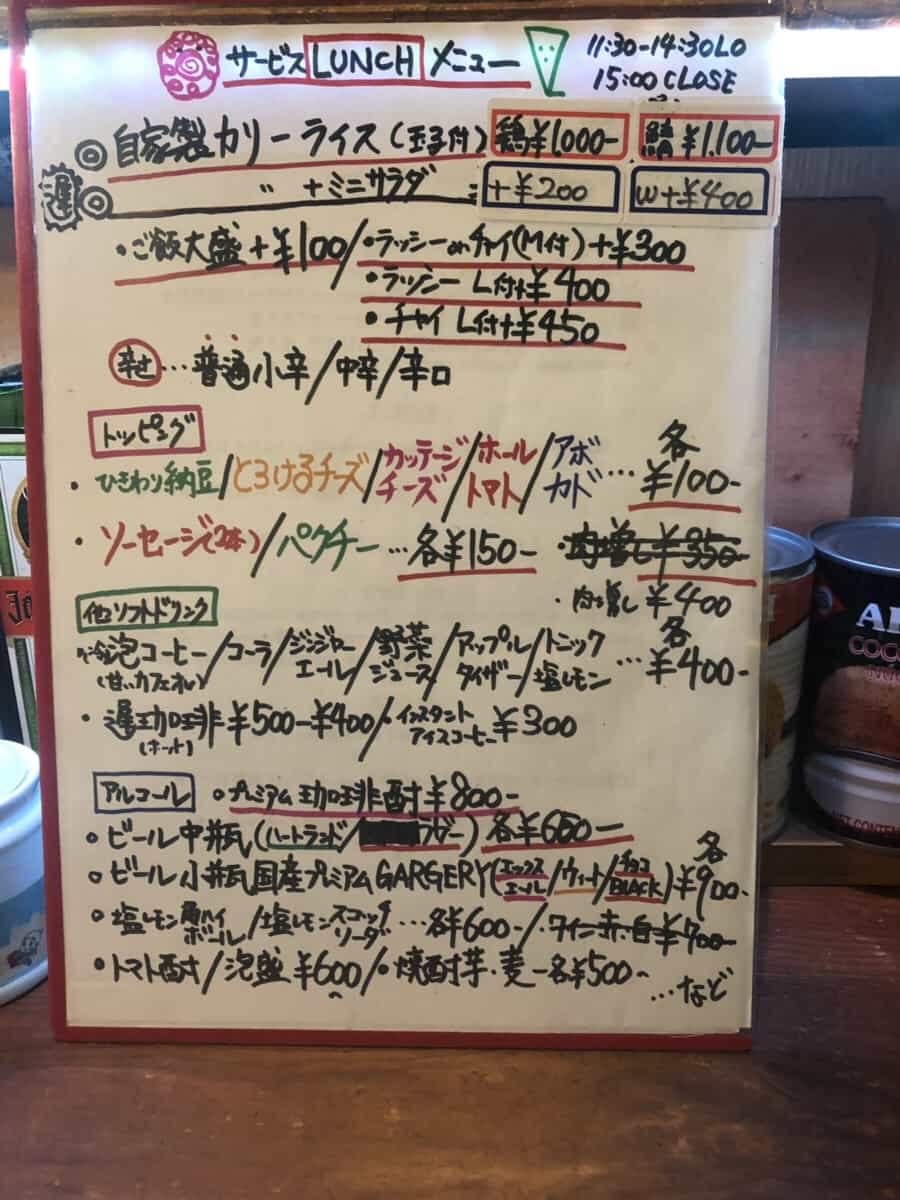 サービスLUNCHメニュー
11:30-14:30LO
15:00 CLOSE
◎自家製カリーライス(玉子付) 鶏¥1,000- 鯖¥1,100-
遅
◎ 〃 +ミニサラダ +¥200 W+¥400
・ご飯大盛+¥100/・ラッシーorチャイ(M付)+¥300
・ラッシー L付+¥400
・チャイ L付+¥450
辛さ…普通小辛/中辛/辛口
トッピング
・ひきわり納豆/とろけるチーズ/カッテージチーズ/ホールトマト/アボカド…各¥100-
・ソーセージ(2本)/パクチー…各¥150- ・肉増し¥350-
・肉増し¥400
他ソフトドリンク
泡コーヒー(甘いカフェオレ)/コーラ/ジンジャーエール/野菜ジュース/アップルタイザー/トニック塩レモン…各¥400-
・遅珈琲(ホット)¥500-¥400/・インスタントアイスコーヒー¥300
アルコール ○プレミアム珈琲酎¥800-
○ビール中瓶(ハートランド/ラガー)各¥650-
○ビール小瓶国産プレミアムGARGERY(エックスエール/ウィート/チョコBLACK)各¥900-
・塩レモン角ハイボール/塩レモンスコッチソーダ…各¥600-/・ワイン赤・白¥700-
・トマト酎/泡盛¥600/・焼酎芋・麦-各¥500~
…など
AR
COCO
NET CONTEN